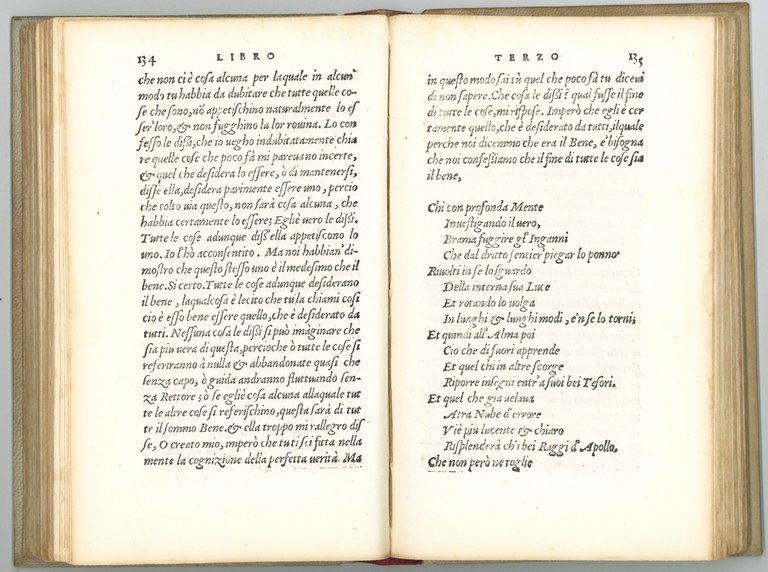 134 LIBRO
che non ci è cosa alcuna per laquale in alcun'
modo tu habbia da dubitare che tutte quelle co-
se che sono, nō appetischino naturalmente lo es
ser' loro, & non fugghino la lor rouina. Lo con
fesso le dissi, che io uegho indubitatamente chia
re quelle cose che poco fà mi pareuano incerte,
& quel che desidera lo essere, ò di mantenersi,
disse ella, desidera parimente essere uno, percio
che tolto uia questo, non sarà cosa alcuna, che
habbia certamente lo essere; Egliè uero le dissi.
Tutte le cose adunque diss' ella appetiscono lo
uno. Io l'hò acconsentito. Ma noi habbian' di-
mostro che questo stesso uno è il medesimo che il
bene. Si certo. Tutte le cose adunque desiderano
il bene, laqualcosa è lecito che tu la chiami cosi
cio è esso bene essere quello, che è desiderato da
tutti. Nessuna cosa le dissi si può imàginare che
sia piu uera di questa, percioche ò tutte le cose si
referiranno à nulla & abbandonate quasi che
senza capo, ò guida andranno fluttuando sen-
za Rettore; ò se egliè cosa alcuna allaquale tut
te le altre cose si referischino, questa sarà di tut
te il sommo Bene. & ella troppo mi rallegro dis
se, O creato mio, imperò che tu ti sei fitta nella
mente la cognizione della perfetta uerità. Ma
TERZO 135
in questo modo sai tù quel che poco fà tu diceui
di non sapere. Che cosa le dissi? qual fusse il fine
di tutte le cose, mi rispose. Imperò che egli è cer
tamente quello, che è desiderato da tutti, ilquale
perche noi dicemmo che era il Bene, è bisogna
che noi confessiamo che il fine di tutte le cose sia
il bene,
Chi con profonda Mente
Inuestigando il uero,
Brama fuggire gl' Inganni
Che dal dritto sentier piegar lo ponno
Riuolti in se lo sguardo
Della interna sua Luce
Et rotando lo uolga
In lunghi & lunghi modi, e'n se lo torni;
Et quindi all' Alma poi
Cio che di fuori apprende
Et quel chi in altre scorge
Riporre insegni entr' a suoi bei Tesori.
Et quel che gia uelaua
Atra Nube d'errore
Viè piu lucente & chiaro
Risplenderà ch'i bei Raggi d' Apollo.
Che non però ne toglie